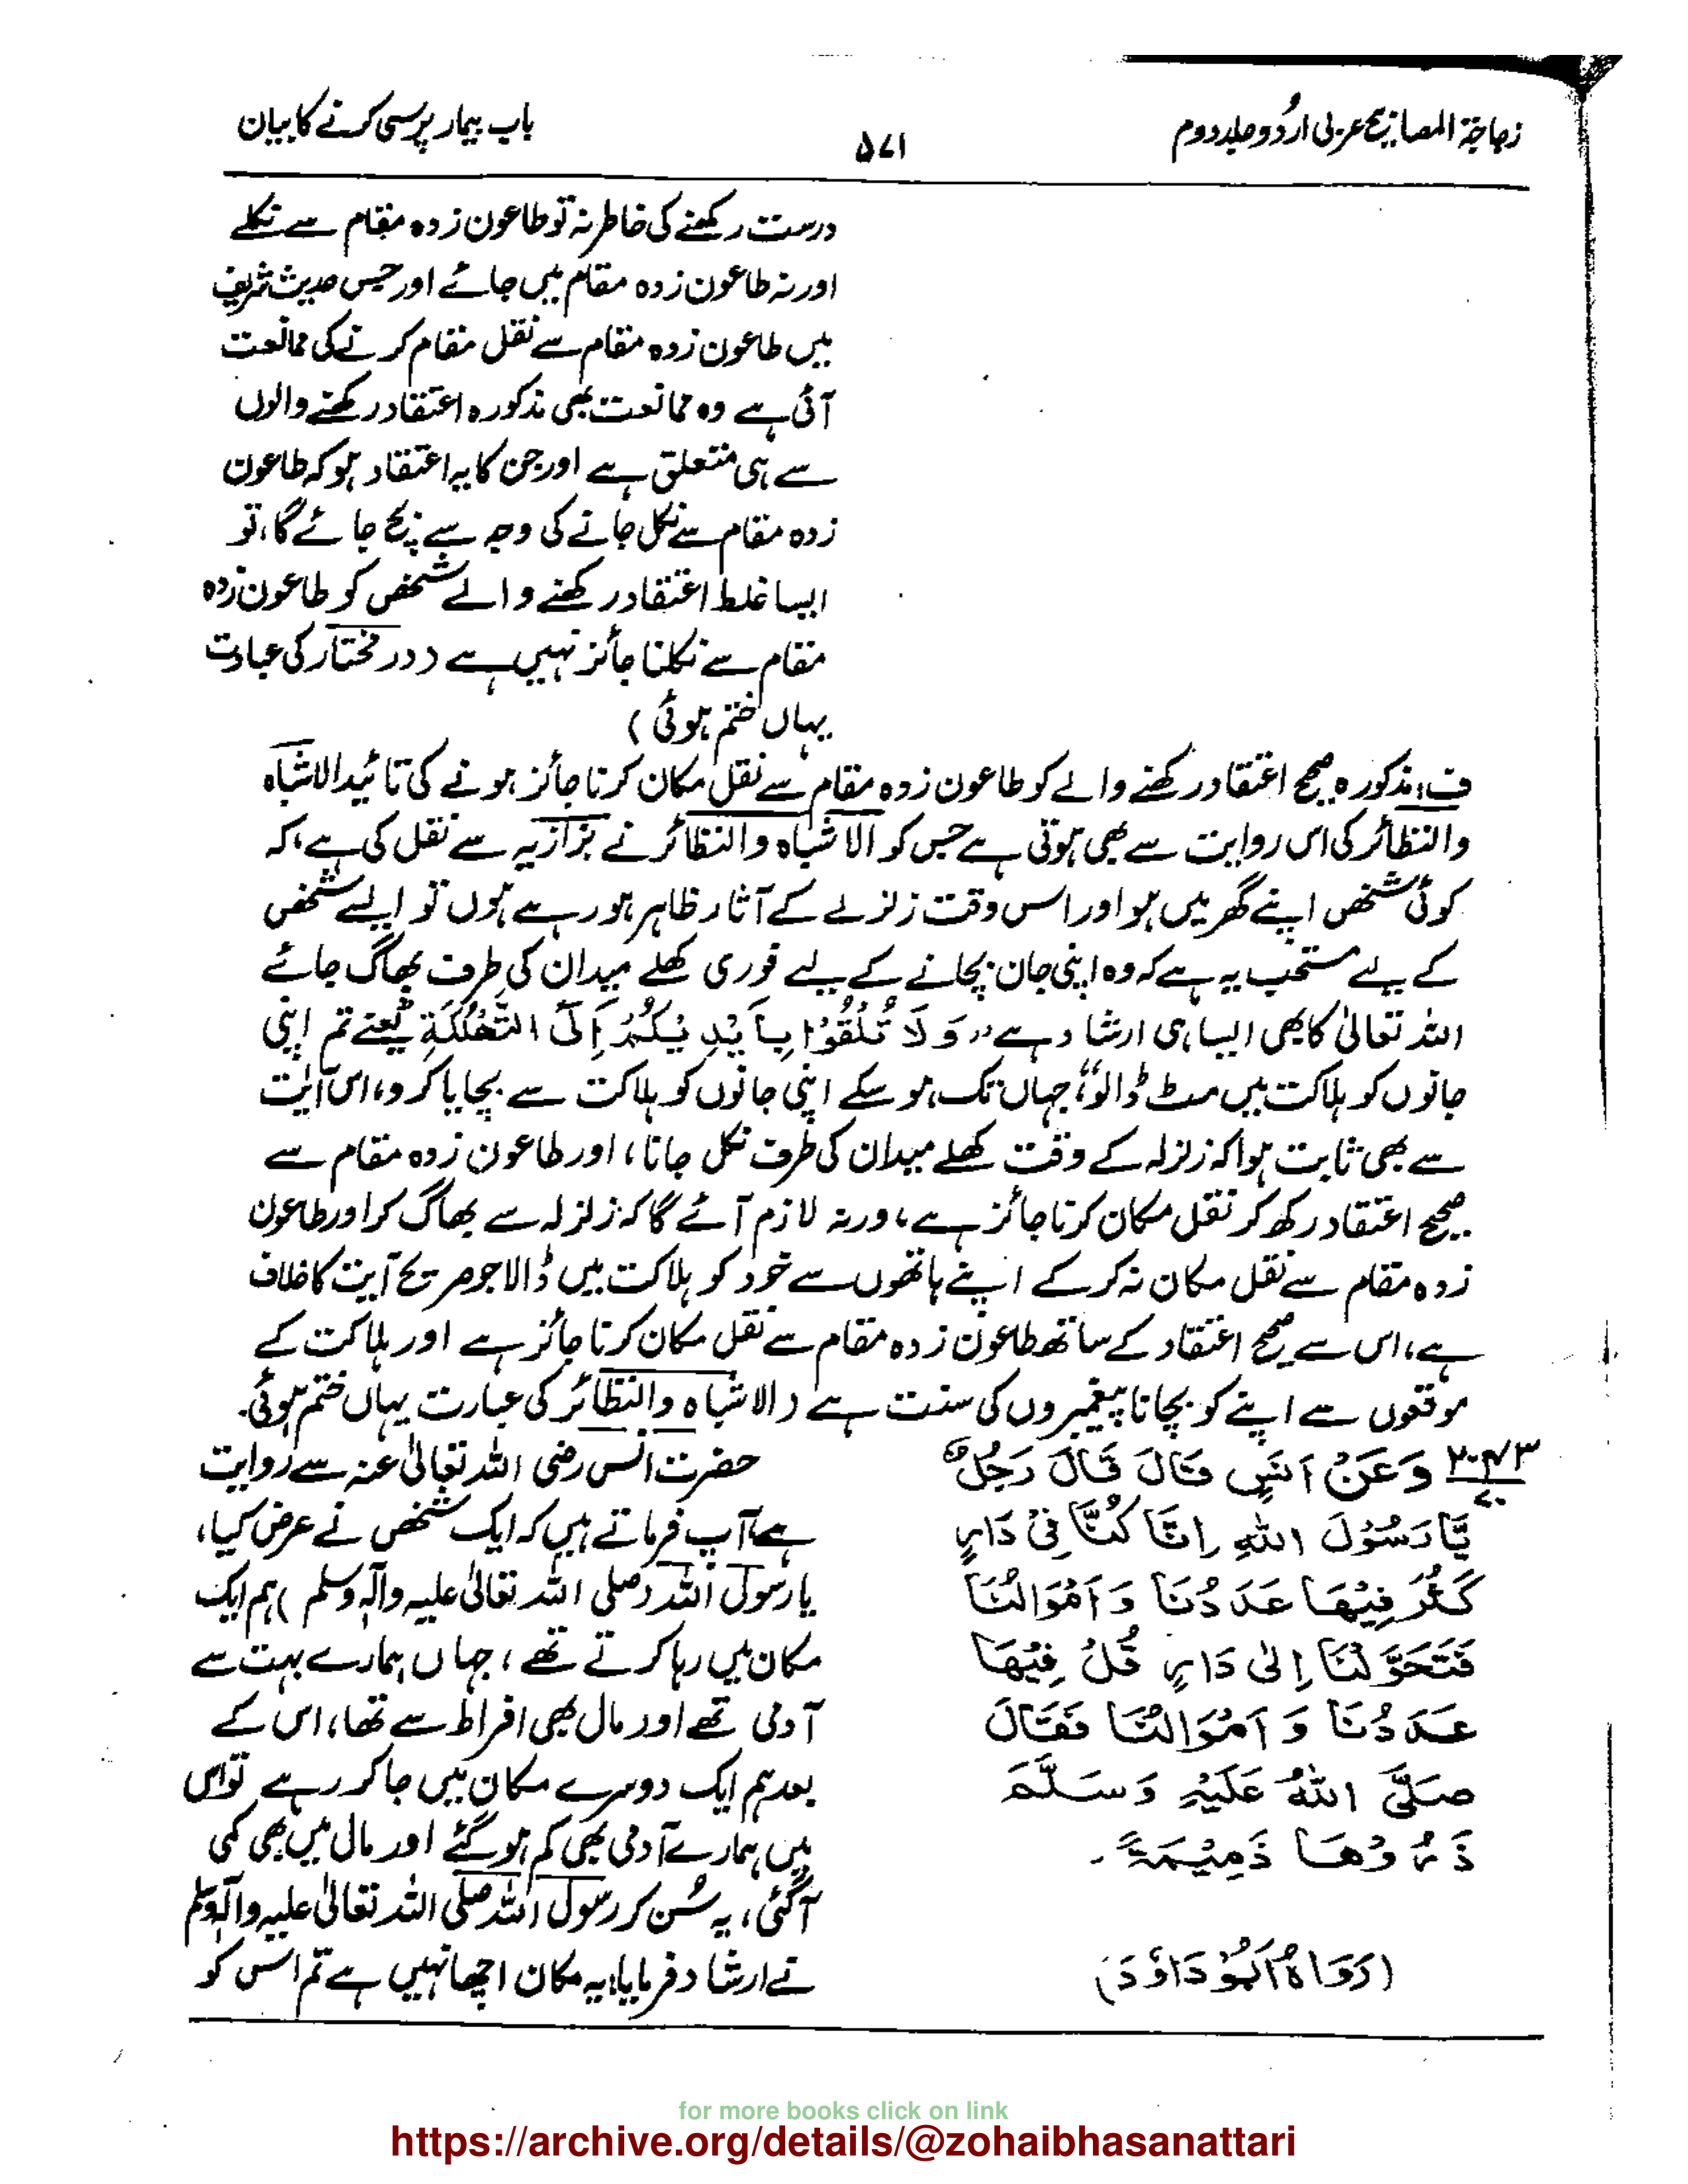 زجاجۃ المصابیح عربی اردو جلد دوم
۵۷۱
باب بیمار پرسی کرنے کا بیان
درست رکھنے کی خاطر نہ تو طاعون زدہ مقام سے نکلے
اور نہ طاعون زدہ مقام میں جائے اور جس حدیث شریف
میں طاعون زدہ مقام سے نقل مقام کرنے کی ممانعت
آئی ہے وہ ممانعت بھی مذکورہ اعتقاد رکھنے والوں
سے ہی متعلق ہے اور جن کا یہ اعتقاد ہو کہ طاعون
زدہ مقام سے نکل جانے کی وجہ سے بچ جائے گا، تو
ایسا غلط اعتقاد رکھنے والے شخص کو طاعون زدہ
مقام سے نکلنا جائز نہیں ہے (در مختار کی عبارت
یہاں ختم ہوئی)
ف: مذکورہ صحیح اعتقاد رکھنے والے کو طاعون زدہ مقام سے نقل مکان کرنا جائز ہونے کی تائید الاشباہ
والنظائر کی اس روایت سے بھی ہوتی ہے جس کو الاشباہ والنظائر نے بزازیہ سے نقل کی ہے، کہ
کوئی شخص اپنے گھر میں ہو اور اس وقت زلزلے کے آثار ظاہر ہو رہے ہوں تو ایسے شخص
کے لیے مستحب یہ ہے کہ وہ اپنی جان بچانے کے لیے فوری کھلے میدان کی طرف بھاگ جائے
اللہ تعالیٰ کا بھی ایسا ہی ارشاد ہے "وَلَا تُلْقُوْا بِاَیْدِیْکُمْ اِلَی التَّھْلُکَةِ" یعنے تم اپنی
جانوں کو ہلاکت میں مت ڈالو"، جہاں تک ہو سکے اپنی جانوں کو ہلاکت سے بچایا کرو، اس آیت
سے بھی ثابت ہوا کہ زلزلہ کے وقت کھلے میدان کی طرف نکل جانا، اور طاعون زدہ مقام سے
صحیح اعتقاد رکھ کر نقل مکان کرنا جائز ہے، ورنہ لازم آئے گا کہ زلزلہ سے بھاگ کر اور طاعون
زدہ مقام سے نقل مکان نہ کر کے اپنے ہاتھوں سے خود کو ہلاکت میں ڈالا جو صریح آیت کا خلاف
ہے، اس سے صحیح اعتقاد کے ساتھ طاعون زدہ مقام سے نقل مکان کرنا جائز ہے اور ہلاکت کے
موقعوں سے اپنے کو بچانا پیغمبروں کی سنت ہے (الاشباہ والنظائر کی عبارت یہاں ختم ہوئی۔
وَعَنْ اَنَسٍ قَالَ قَالَ رَجُلٌ
یَّا رَسُوْلَ اللهِ اِنَّا کُنَّا فِیْ دَارٍ
کَثُرَ فِیْھَا عَدَدُنَا وَ اَمْوَالُنَا
فَتَحَوَّلْنَا اِلٰی دَارٍ قَلَّ فِیْھَا
عَدَدُنَا وَ اَمْوَالُنَا فَقَالَ
صَلَّی اللهُ عَلَیْہِ وَسَلَّمَ
ذَرُوْھَا ذَمِیْمَةً۔
(رَوَاہُ اَبُوْ دَاوٗدَ)
حضرت انس رضی اللہ تعالیٰ عنہ سے روایت
ہے، آپ فرماتے ہیں کہ ایک شخص نے عرض کیا،
یا رسول اللہ (صلی اللہ تعالیٰ علیہ وآلہٖ وسلم) ہم ایک
مکان میں رہا کرتے تھے، جہاں ہمارے بہت سے
آدمی تھے اور مال بھی افراط سے تھا، اس کے
بعد ہم ایک دوسرے مکان میں جا کر رہے تو اس
میں ہمارے آدمی بھی کم ہو گئے اور مال میں بھی کمی
آگئی، یہ سُن کر رسول اللہ صلی اللہ تعالیٰ علیہ وآلہٖ وسلم
نے ارشاد فرمایا، یہ مکان اچھا نہیں ہے تم اس کو
for more books click on link
https://archive.org/details/@zohaibhasanattari